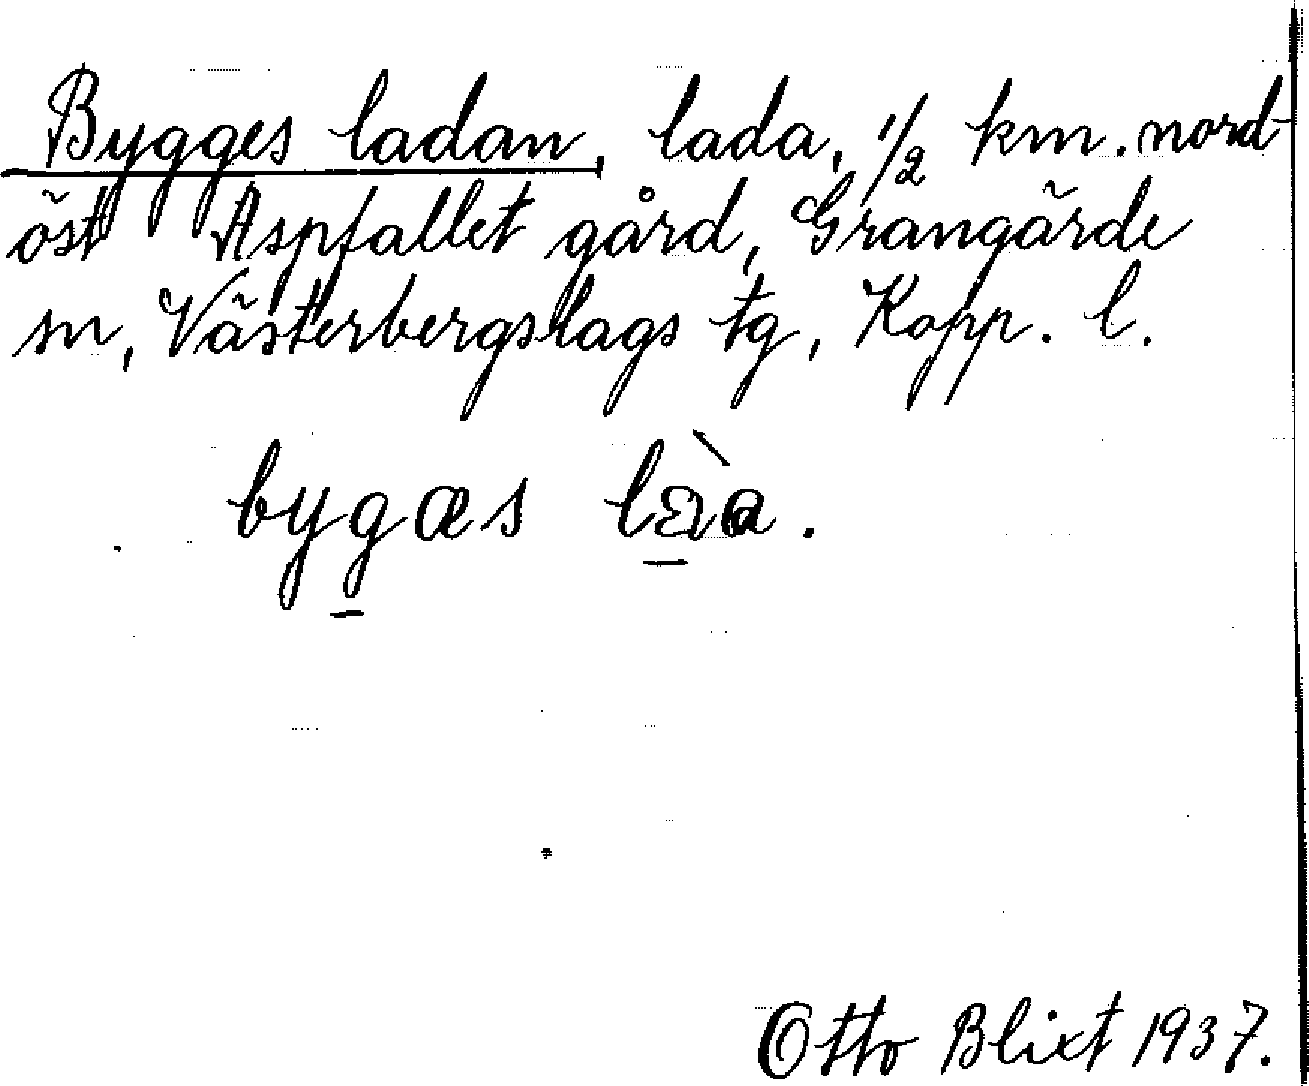 Bygges ladan, lada, 1/2 km. nord-
öst Aspfallet gård, Grangärde
sn, Västerbergslags tg, Kopp. l.
bygæs
Otto Blixt 1937.